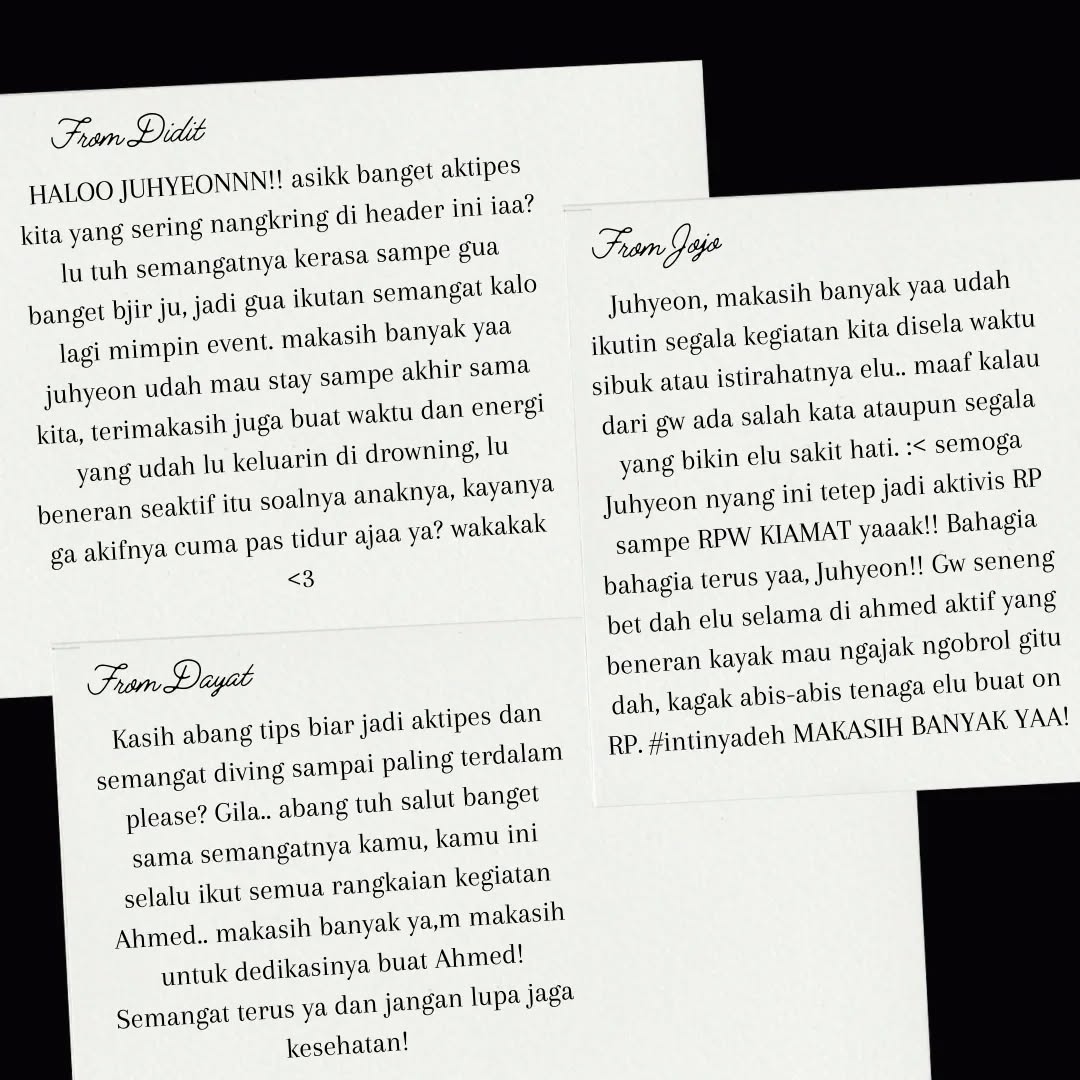 From Didit
HALOO JUHYEONNN!! asikk banget aktipes
kita yang sering nangkring di header ini iaa?
lu tuh semangatnya kerasa sampe gua
banget bjir ju, jadi gua ikutan semangat kalo
lagi mimpin event. makasih banyak yaa
juhyeon udah mau stay sampe akhir sama
kita, terimakasih juga buat waktu dan energi
yang udah lu keluarin di drowning, lu
beneran seaktif itu soalnya anaknya, kayanya
ga akifnya cuma pas tidur ajaa ya? wakakak
<3
From Jojo
Juhyeon, makasih banyak yaa udah
ikutin segala kegiatan kita disela waktu
sibuk atau istirahatnya elu.. maaf kalau
dari gw ada salah kata ataupun segala
yang bikin elu sakit hati. :< semoga
Juhyeon nyang ini tetep jadi aktivis RP
sampe RPW KIAMAT yaaak!! Bahagia
bahagia terus yaa, Juhyeon!! Gw seneng
bet dah elu selama di ahmed aktif yang
beneran kayak mau ngajak ngobrol gitu
dah, kagak abis-abis tenaga elu buat on
RP. #intinyadeh MAKASIH BANYAK YAA!
From Dayat
Kasih abang tips biar jadi aktipes dan
semangat diving sampai paling terdalam
please? Gila.. abang tuh salut banget
sama semangatnya kamu, kamu ini
selalu ikut semua rangkaian kegiatan
Ahmed.. makasih banyak ya,m makasih
untuk dedikasinya buat Ahmed!
Semangat terus ya dan jangan lupa jaga
kesehatan!